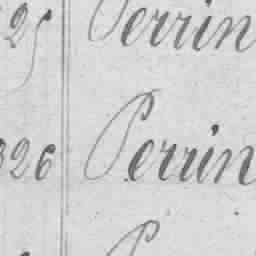 25 Perrin
326 Perrin